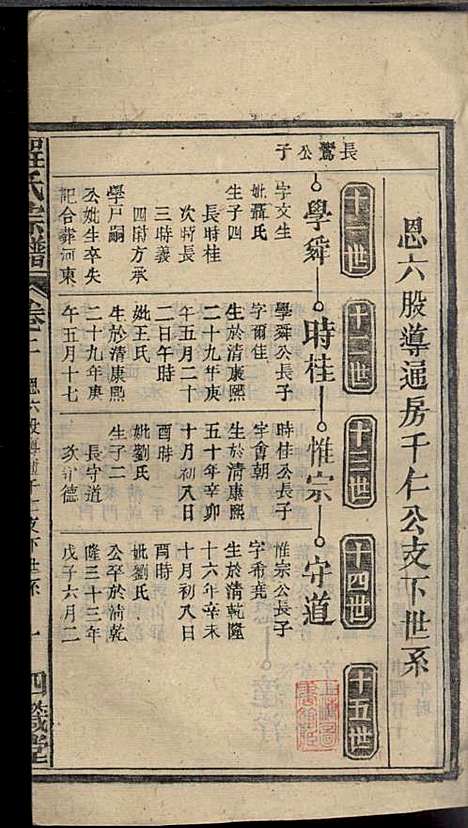 恩六股導通房千仁公支下世系
十一世
十二世
十三世
十四世
十五世
長鶱公子
學舜
時桂
惟宗
守道
字文生
妣聶氏
生子四
長時桂
次時長
三時義
四時方承
學戶嗣
公妣生卒失
記合葬河東
學舜公長子
字爾佳
生於清康熙
二十九年庚
午五月二十
二日午時
妣王氏
生於清康熙
二十九年庚
午五月十七
時桂公長子
字會朝
生於清康熙
五十年辛卯
十月初八日
酉時
妣劉氏
生子二
長守道
次守德
惟宗公長子
字希堯
生於清乾隆
十六年辛未
十月初八日
酉時
妣劉氏
公卒於清乾
隆三十三年
戊子六月二
氏宗譜
卷二
恩六股導通千仁支下世系
一
四箴堂